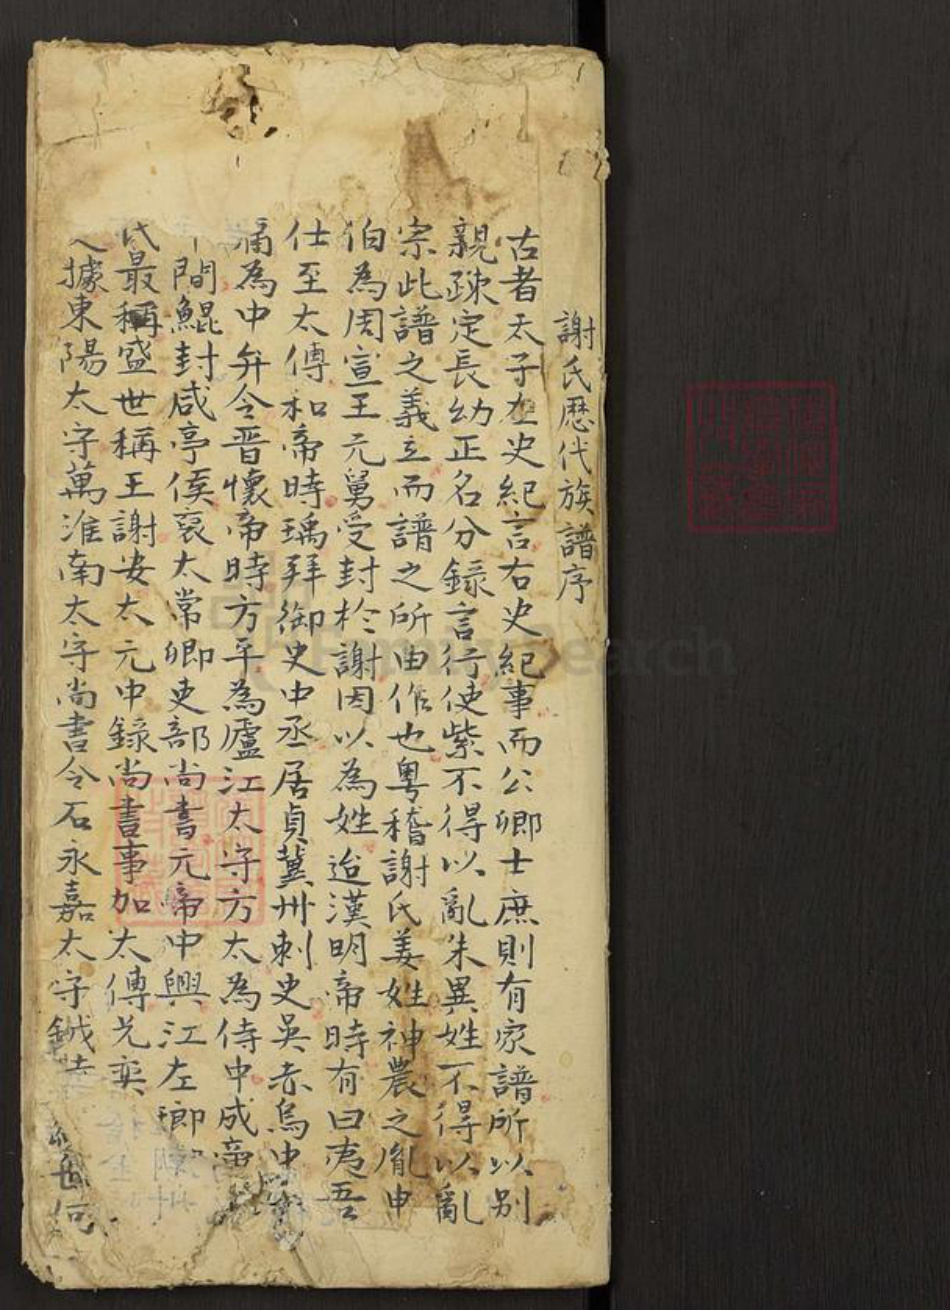 謝氏歷代族譜序
古者天子左史紀言右史紀事而公卿士庶則有家譜所以別
親疎定長幼正名分錄言行使紫不得以亂朱異姓不得以亂
宗此譜之義立而譜之所由作也粵稽謝氏姜姓神農之胤申
伯為周宣王元舅受封於謝因以為姓迨漢明帝時有曰夷吾
仕至太傅和帝時瑀拜御史中丞居貞冀州刺史吳赤烏中
為中弁令晋懷帝時方平為廬江太守方太為侍中成帝
間鯤封咸亭侯裒太常卿吏部尚書元帝中興江左瑯
氏最稱盛世稱王謝安太元中錄尚書事加太傅兄奕
據東陽太守萬淮南太守尚書令石永嘉太守鋮
何